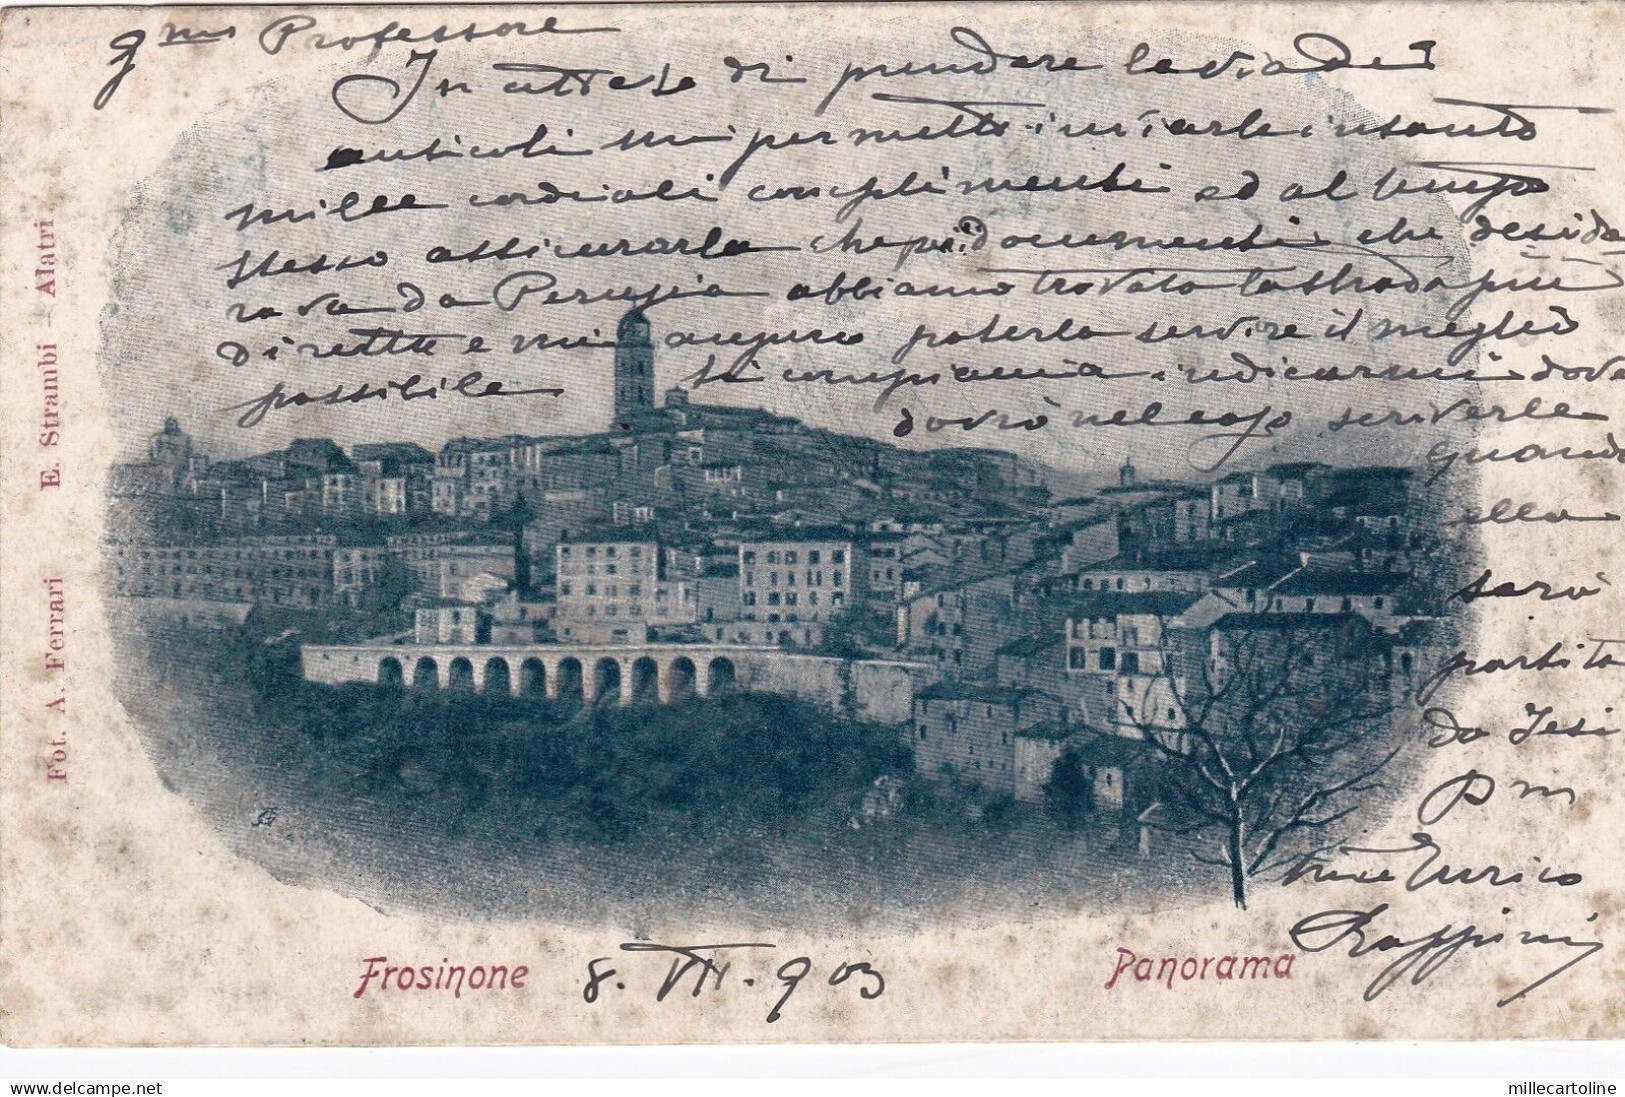 Professore
In attesa di prendere la via de
anticoli mi permetto inviarle intanto
mille cordiali complimenti ed al tempo
stesso assicurarla che pei documenti che deside
rava da Perugia abbiamo trovato la strada più
diretta e mi auguro poterla servire il meglio
possibile Si compiaccia indicarmi dove
dovrò nel caso scriverle
quando
ella
sarà
partita
da Jesi
Enrico
Frosinone 8. VII. 903 Panorama
Fot. A. Ferrari E. Strambi - Alatri
millecartoline